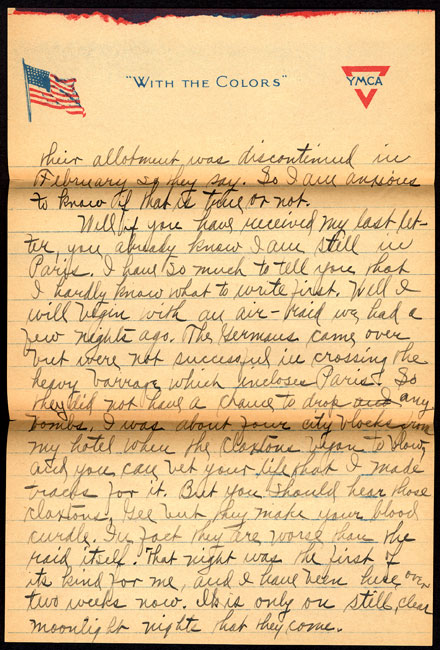 "WITH THE COLORS"
YMCA
their allotment was discontinued in
February so they say. So I am anxious
to know if that is true or not.
Well if you have received my last let-
ter, you already know I am still in
Paris. I have so much to tell you that
I hardly know what to write first. Well I
will begin with an air-raid we had a
few nights ago. The Germans came over
but were not successful in crossing the
heavy barrage which incloses Paris. So
they did not have a chance to drop and any
bombs. I was about four city blocks from
my hotel when the claxtons began to blow,
and you can bet your life that I made
tracks for it. But you should hear those
claxtons, Gee but they make your blood
curdle. In fact they are worse than the
raid itself. That night was the first of
its kind for me, and I have been here, over
two weeks now. It is only on still, clear
moonlight nights that they come.